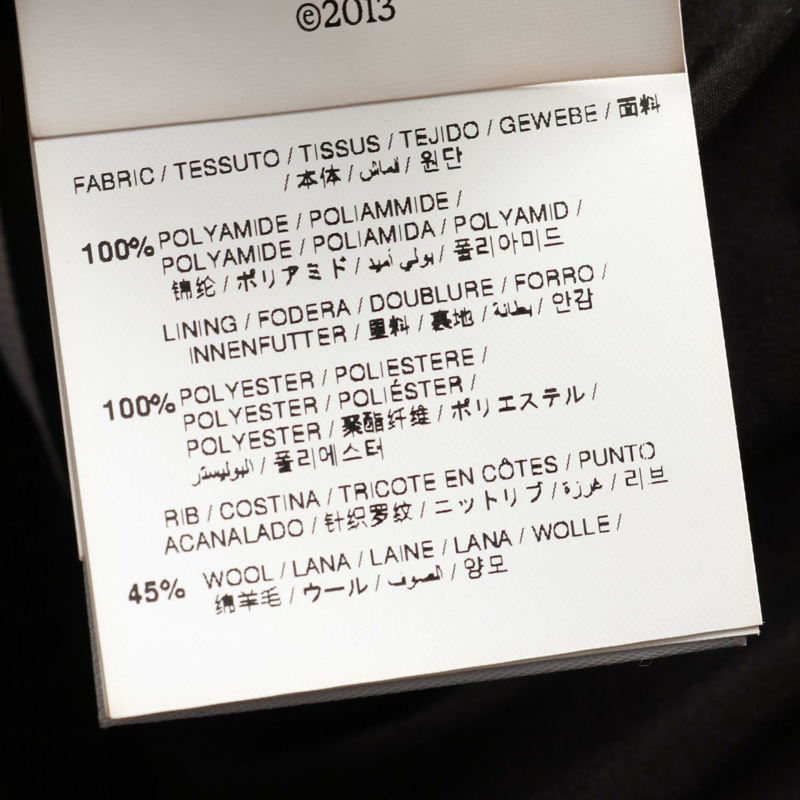 ©2013
FABRIC / TESSUTO / TISSUS / TEJIDO / GEWEBE / 面料
/ 本体 / قماش / 원단
100% POLYAMIDE / POLIAMMIDE /
POLYAMIDE / POLIAMIDA / POLYAMID /
锦纶 / ポリアミド / بولي أميد / 폴리아미드
LINING / FODERA / DOUBLURE / FORRO /
INNENFUTTER / 里料 / 裏地 / بطانة / 안감
100% POLYESTER / POLIESTERE /
POLYESTER / POLIÉSTER /
POLYESTER / 聚酯纤维 / ポリエステル /
البوليستر / 폴리에스터
RIB / COSTINA / TRICOTE EN CÔTES / PUNTO
ACANALADO / 针织罗纹 / ニットリブ / غرزة / 리브
45% WOOL / LANA / LAINE / LANA / WOLLE /
绵羊毛 / ウール / الصوف / 양모